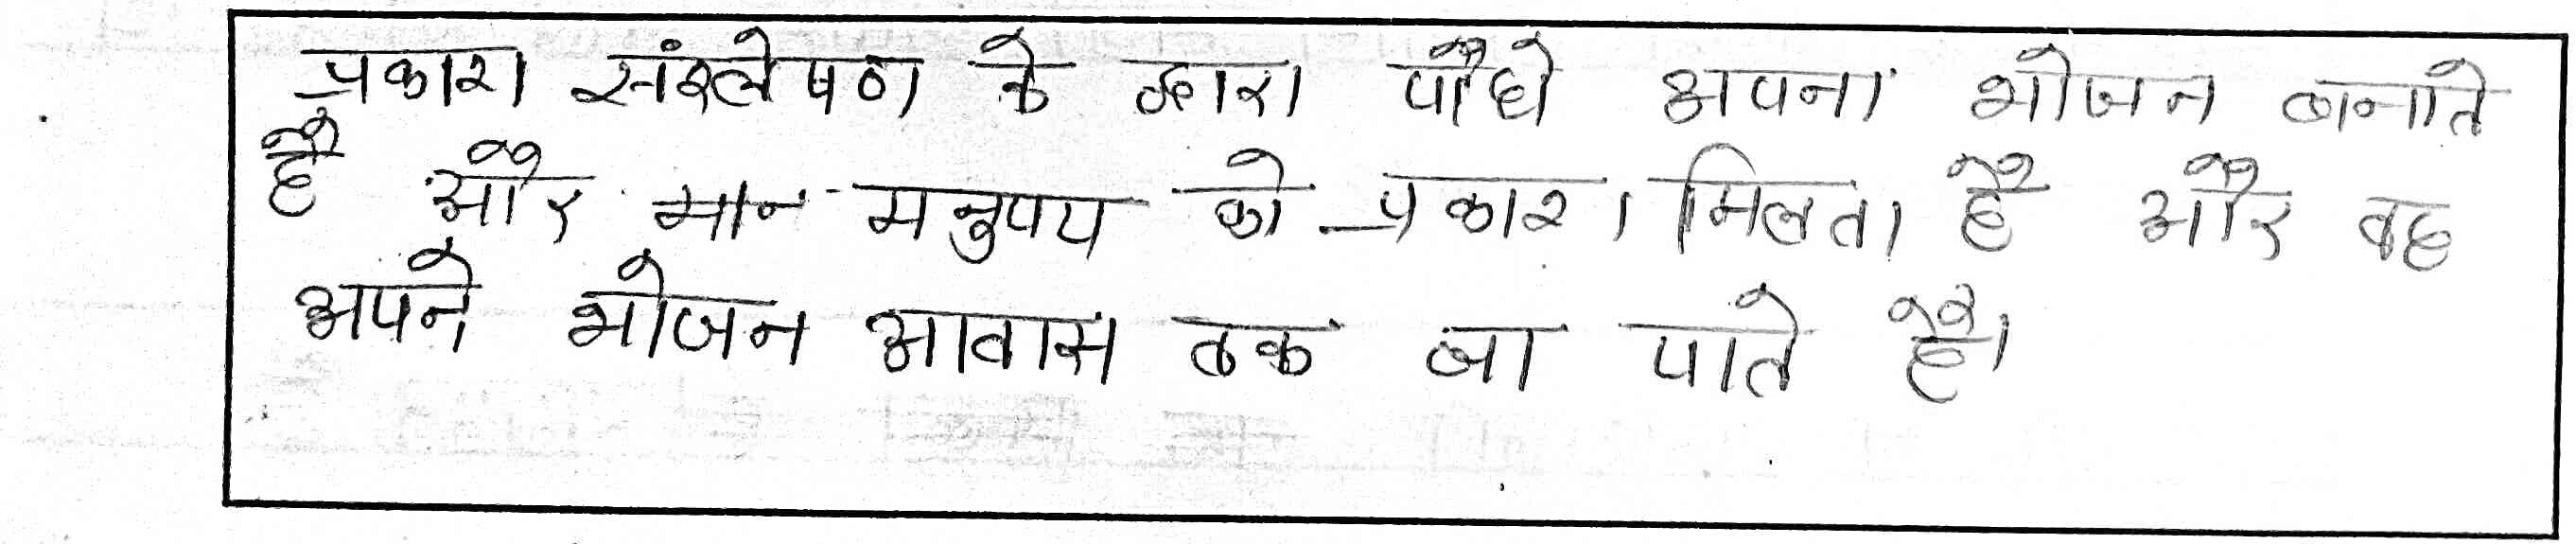 प्रकाश संश्लेषण के द्वारा पौधे अपना भोजन बनाते
है और मान मनुपय को प्रकाश मिलता है और वह
अपने भोजन आवास तक जा पाते है।